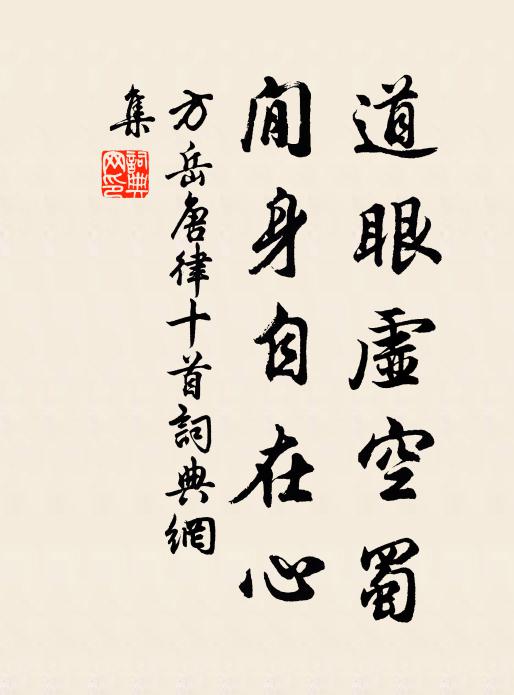 道眼虛空蜀
閒身自在心
方岳唐律十首詞典網
集
詞典
网印